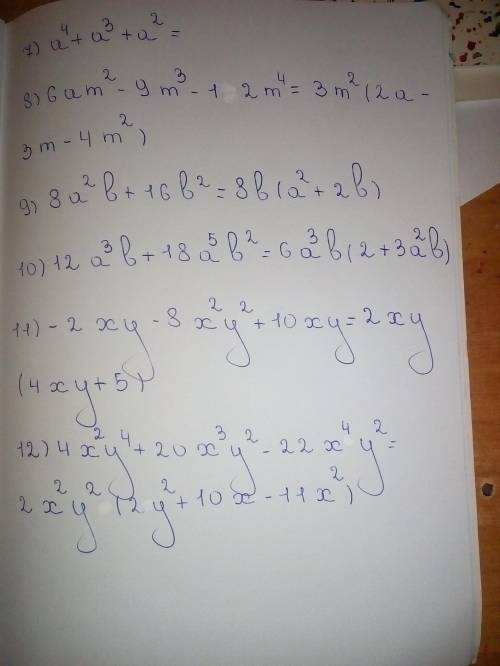 7) a⁴ + a³ + a² =
8) 6am² - 9m³ - 1 2m⁴ = 3m² (2a -
3m - 4m²)
9) 8a²b + 16b² = 8b(a² + 2b)
10) 12a³b + 18a⁵b² = 6a³b(2 + 3a²b)
11) - 2xy - 8x²y² + 10xy = 2xy
(4xy + 5)
12) 4x²y⁴ + 20x³y² - 22x⁴y² =
2x²y² (2y² + 10x - 11x²)